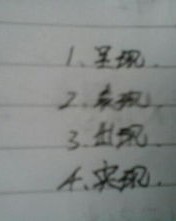 1. 呈现.
2. 表现.
3. 出现.
4. 实现.